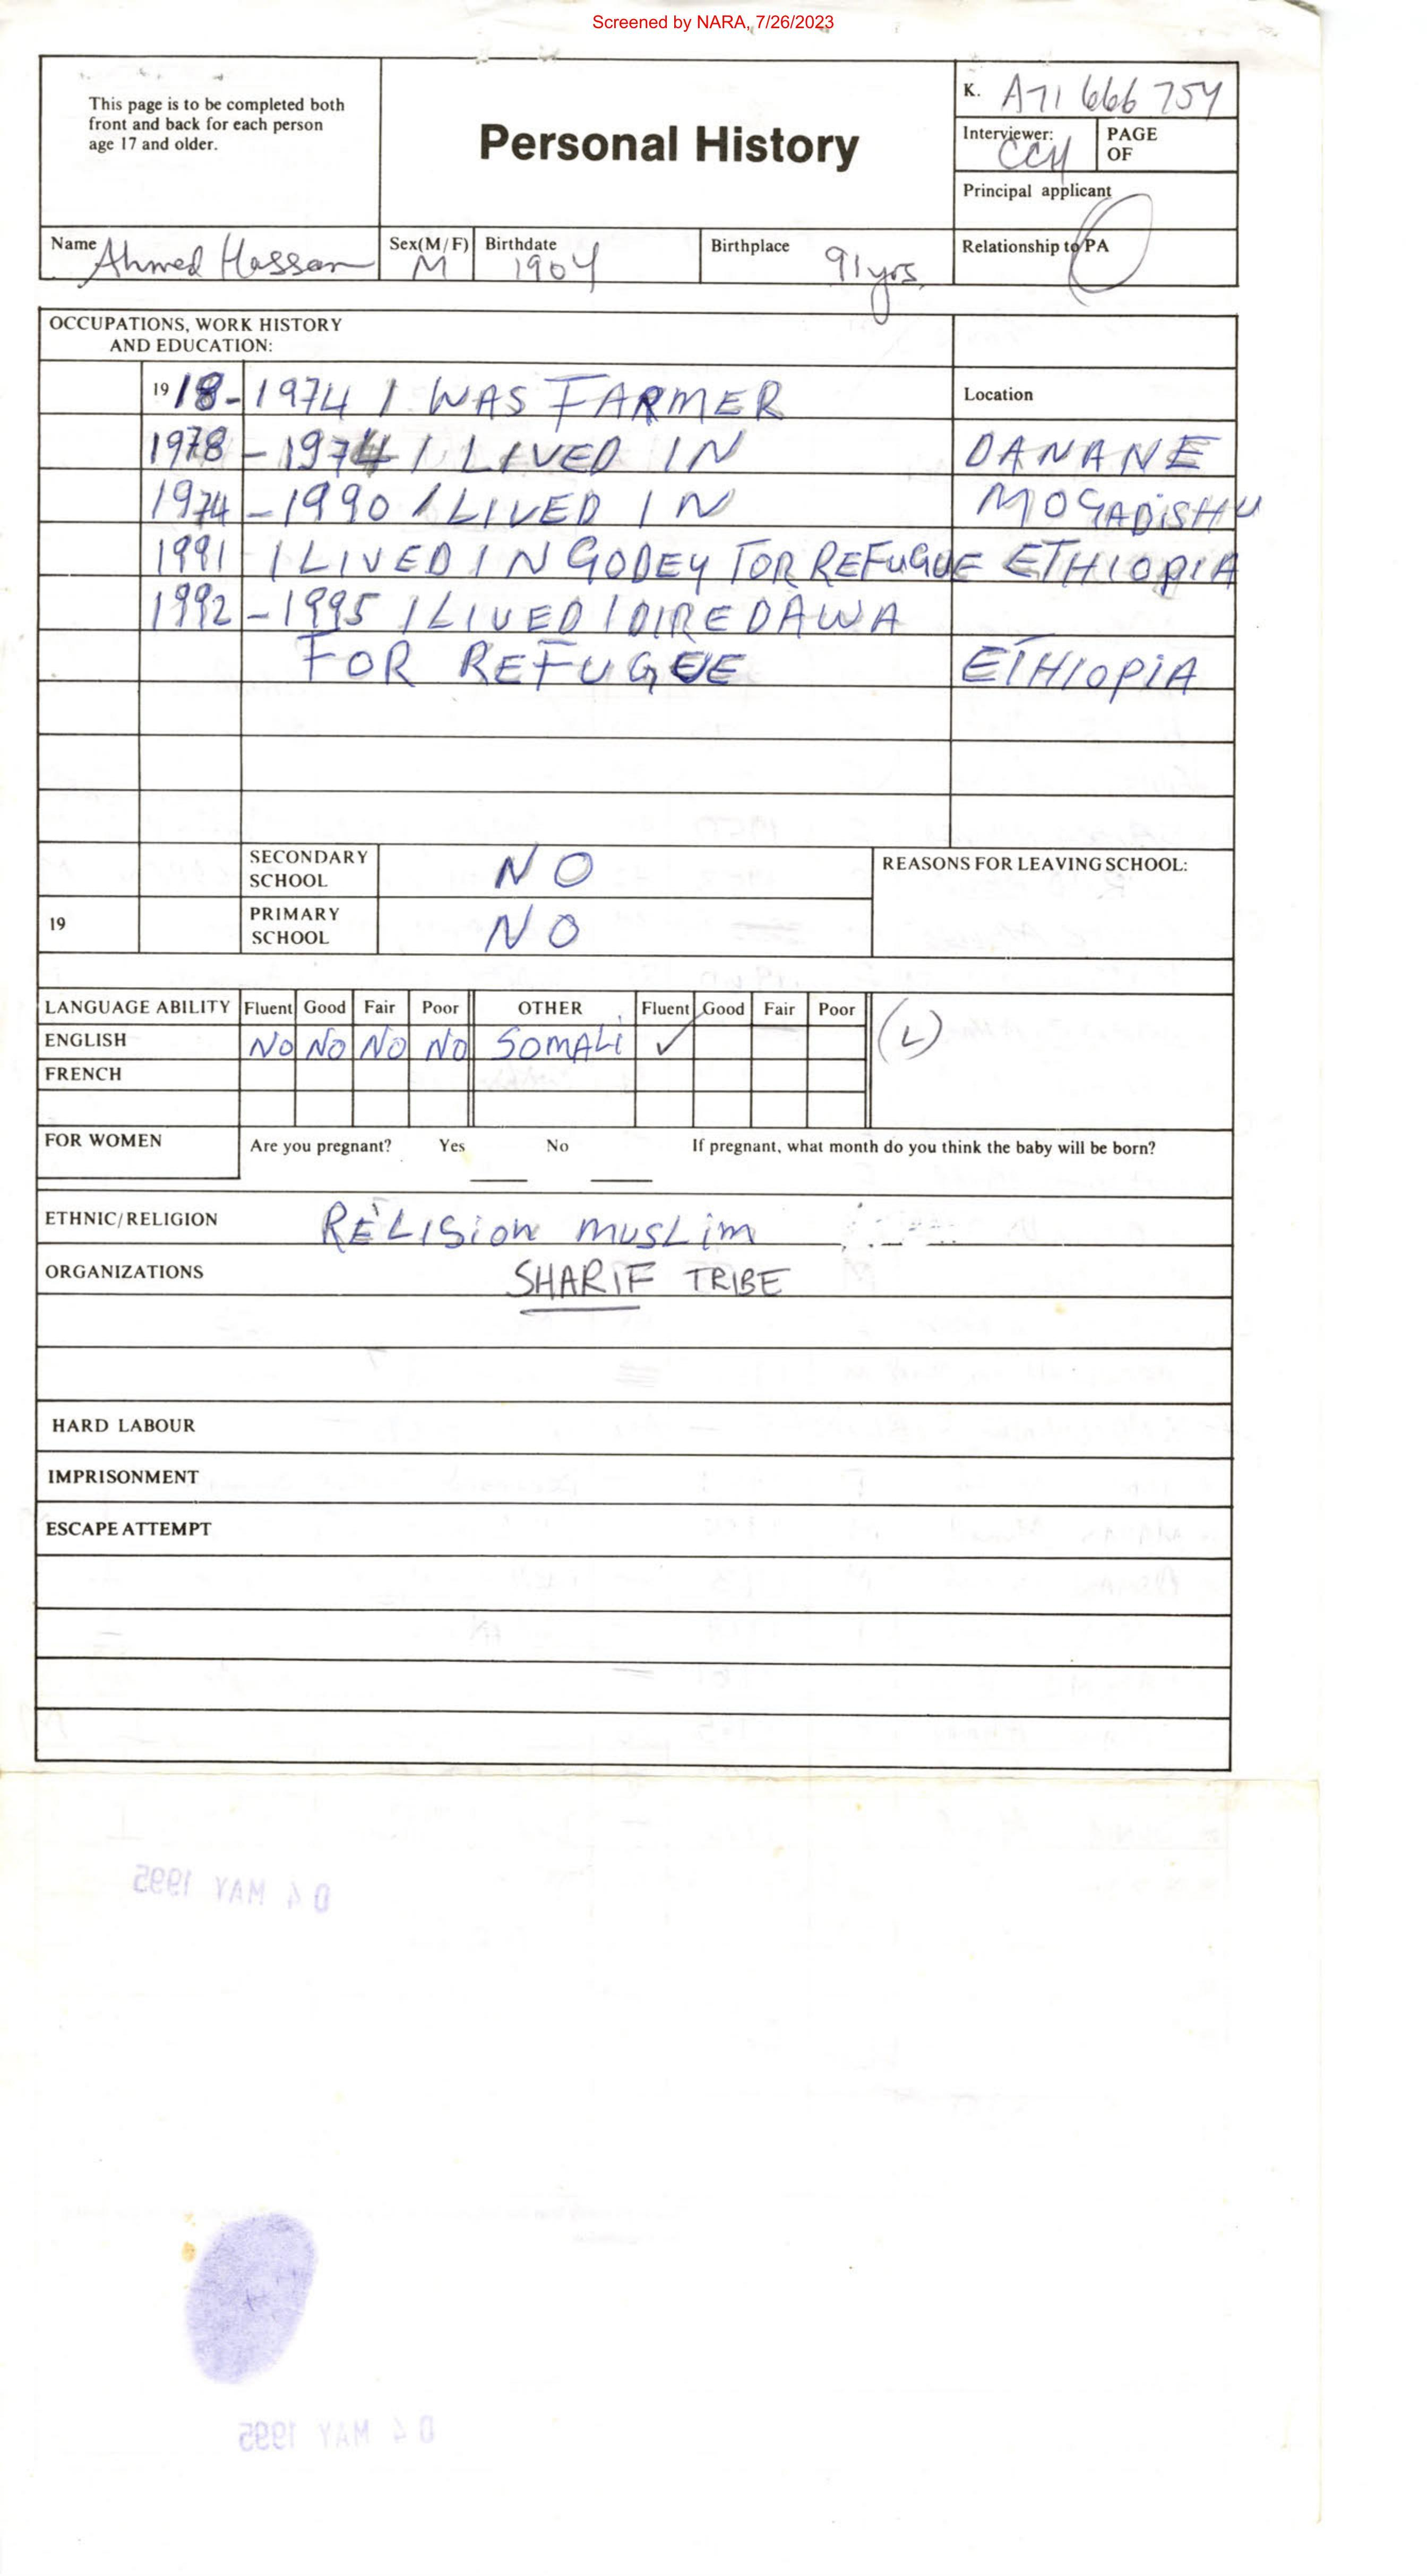 Screened by NARA, 7/26/2023
This page is to be completed both
front and back for each person
age 17 and older.
Personal History
K. A71 666 754
Interviewer: CCH
PAGE
OF
Principal applicant
Name Ahmed Hassan
Sex(M/F) M
Birthdate 1904
Birthplace 91 yrs.
Relationship to PA
OCCUPATIONS, WORK HISTORY
AND EDUCATION:
1918-1974 I WAS FARMER
Location
1978-1974 I LIVED IN DANANE
1974-1990 I LIVED IN MOGADISHU
1991 I LIVED IN GODEY FOR REFUGUE ETHIOPIA
1992-1995 I LIVED I DIRE DAWA
FOR REFUGEE ETHIOPIA
SECONDARY
SCHOOL NO
REASONS FOR LEAVING SCHOOL:
19 PRIMARY
SCHOOL NO
LANGUAGE ABILITY Fluent Good Fair Poor OTHER Fluent Good Fair Poor
(L)
ENGLISH NO NO NO NO SOMALI ✓
FRENCH
FOR WOMEN Are you pregnant? Yes No If pregnant, what month do you think the baby will be born?
ETHNIC/RELIGION RELISion muSLim
ORGANIZATIONS SHARIF TRIBE
HARD LABOUR
IMPRISONMENT
ESCAPE ATTEMPT
04 MAY 1995
04 MAY 1995